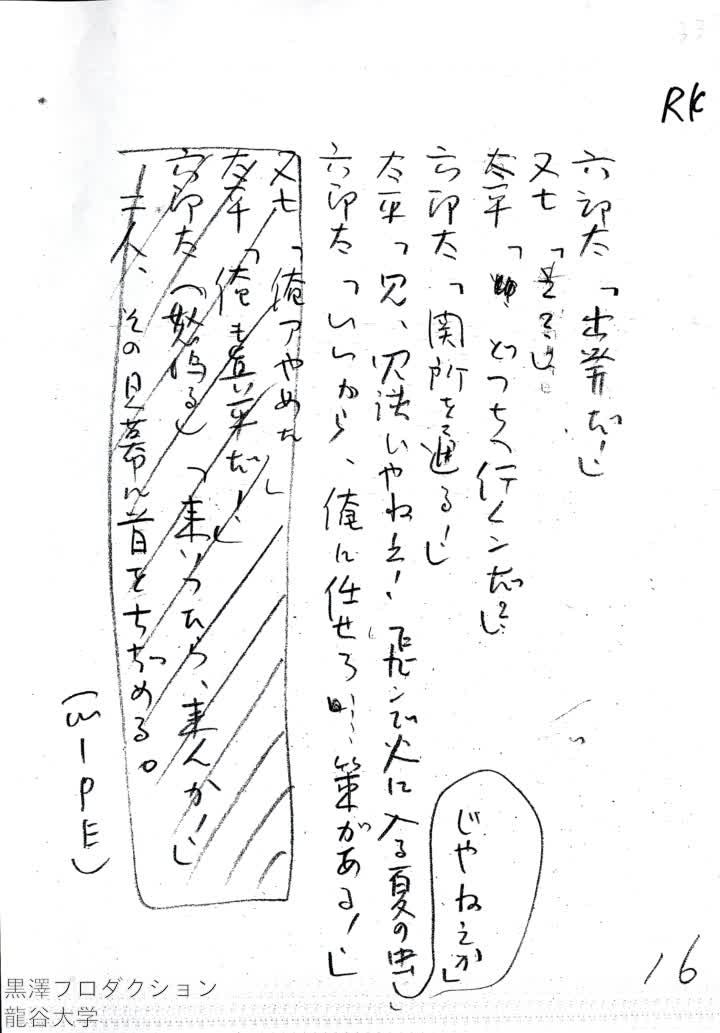 RK
六郎太「出発だ!」
又七「
太平「どっちへ行くンだ?」
六郎太「関所を通る!」
太平「冗、冗談いやねえ! 飛ンで火に入る夏の虫じゃねえか」
六郎太「いいから、俺に任せろ……策がある!」
又七「俺アやめた」
太平「俺も真平だ!」
六郎太(怒鳴る)「来いつたら、来んか!」
二人、その見幕に首をちぢめる。
(WIPE)
16
黒澤プロダクション
龍谷大学